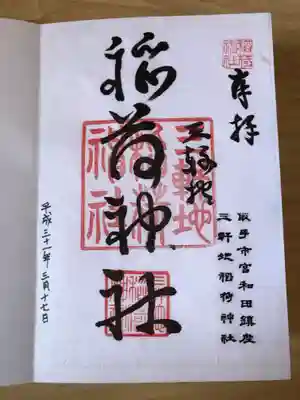 奉拝
取手市宮和田鎮座
三軒地稲荷神社
三軒地
稲荷神社
三軒地
稲荷
神社
平成三十一年三月十七日